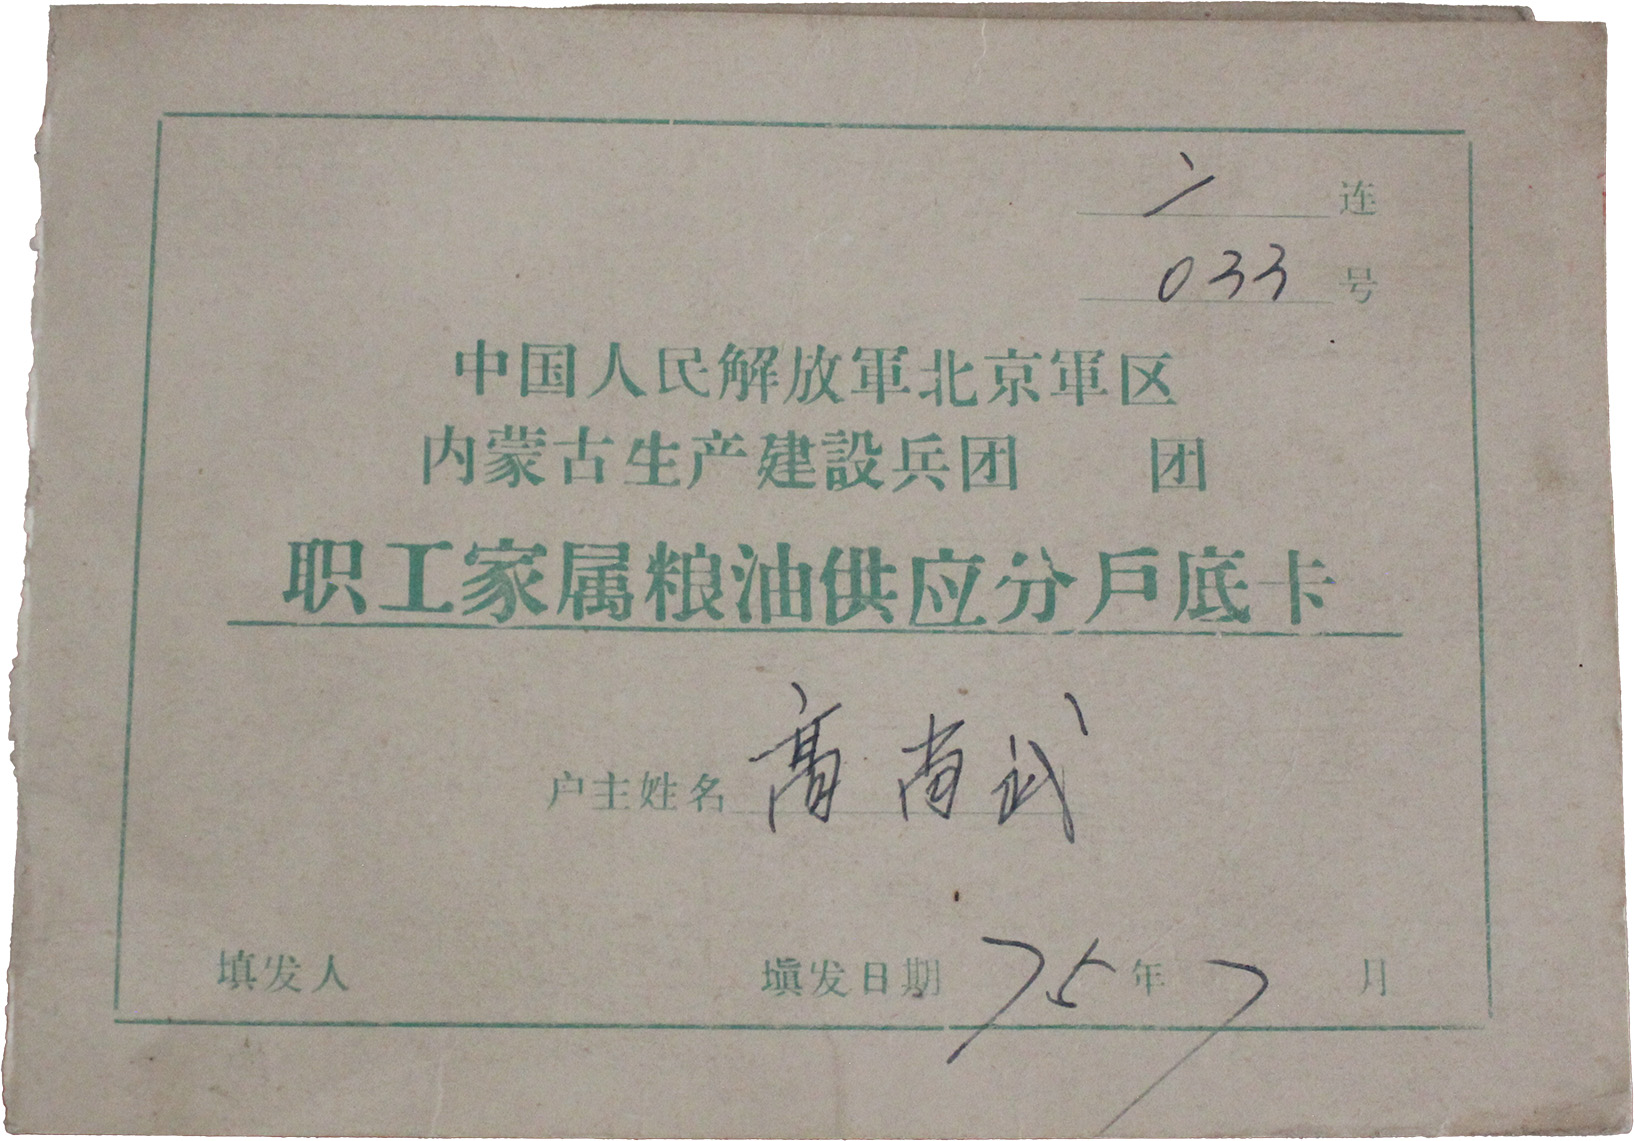 连
033 号
中国人民解放軍北京軍区
内蒙古生产建設兵团 团
职工家属粮油供应分戶底卡
户主姓名 高尚武
填发人 填发日期 75年7月